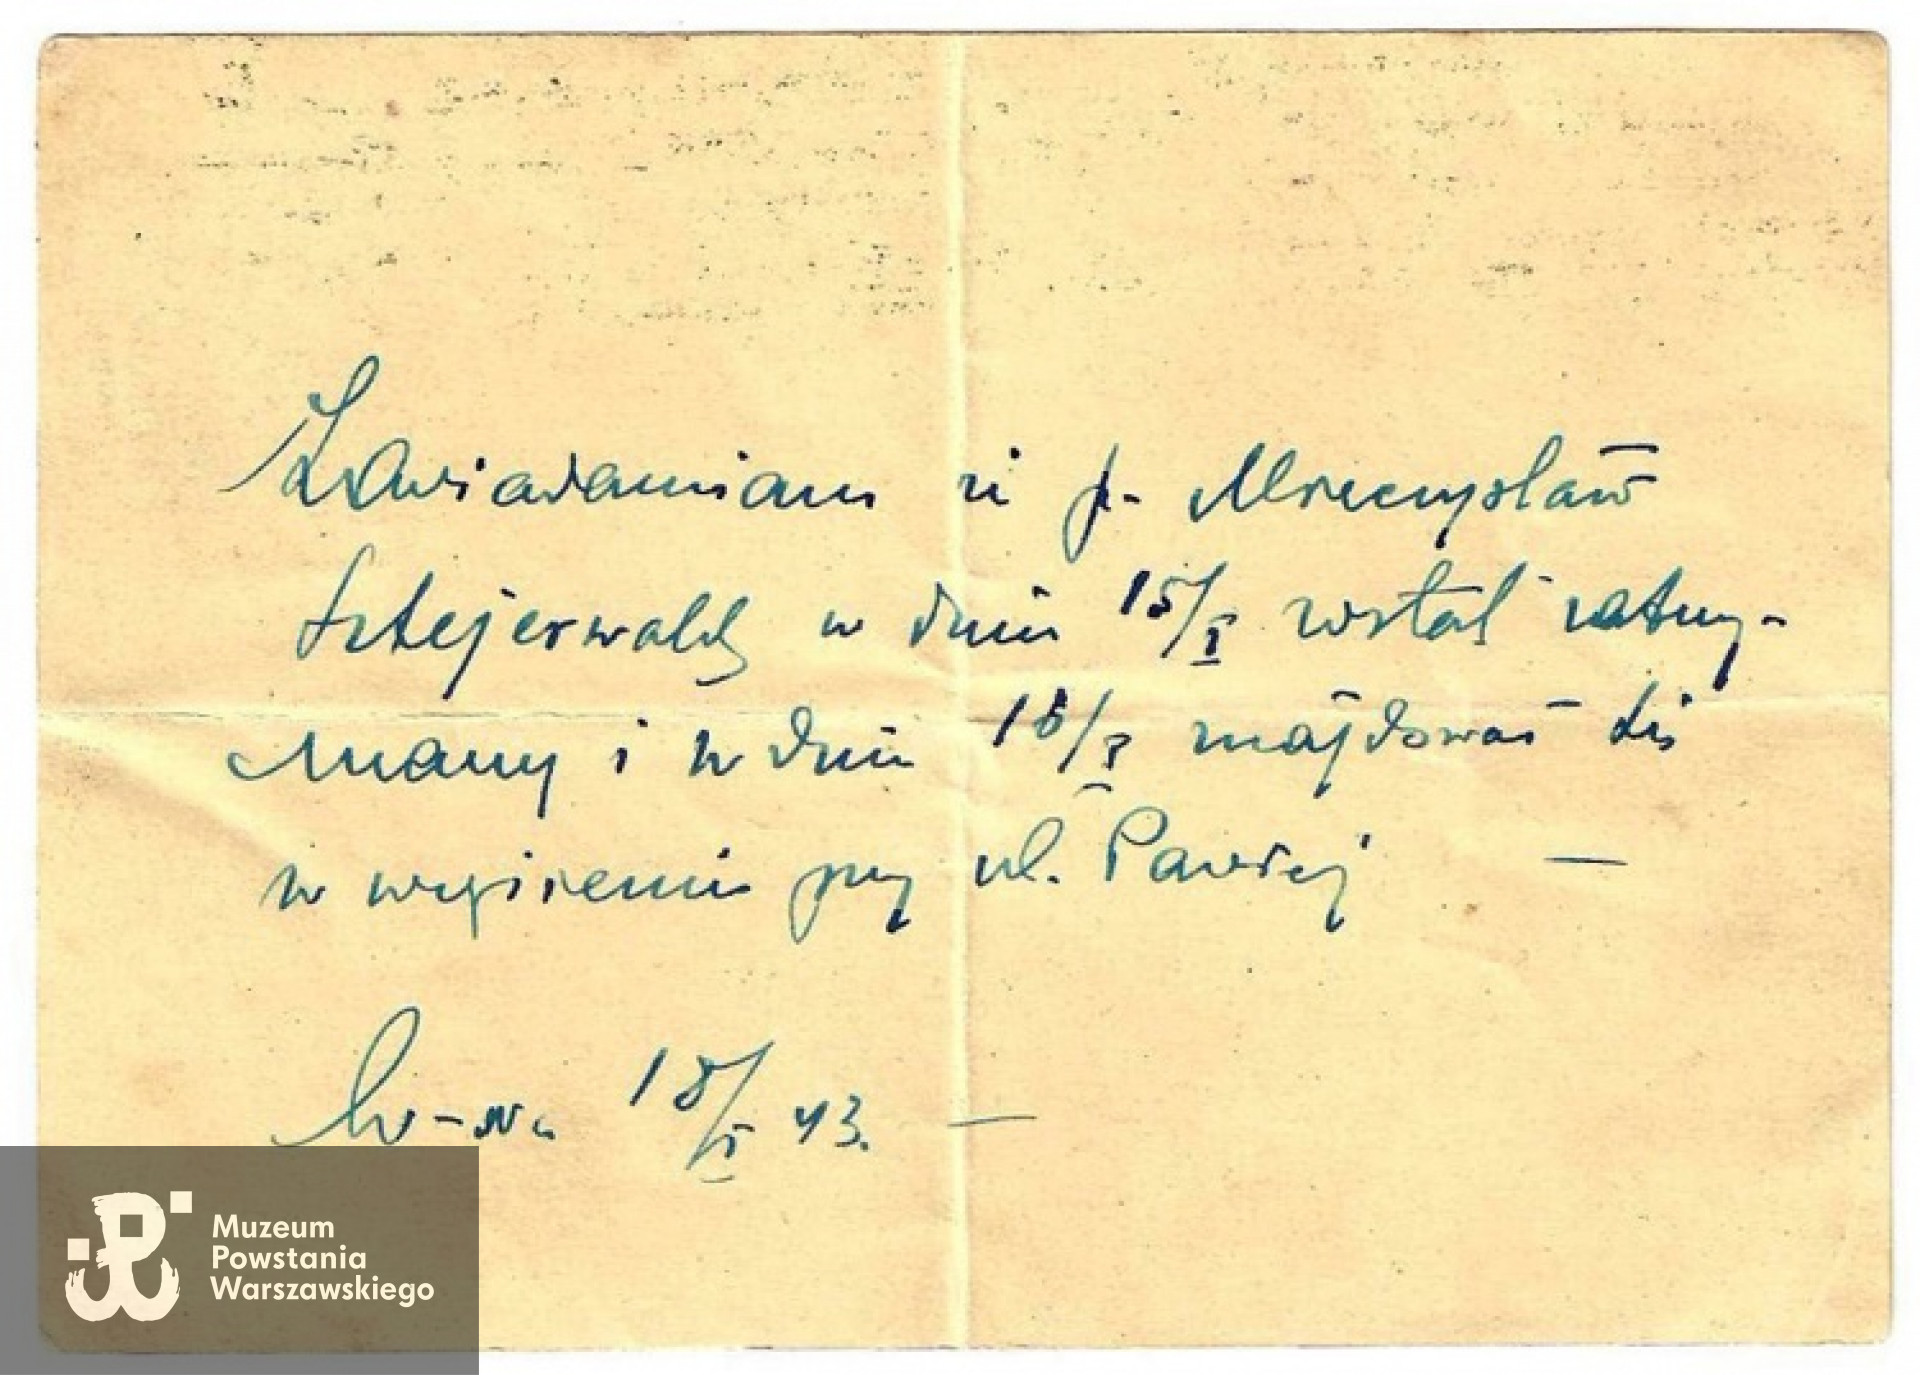 Zawiadamiam że p. Mieczysław
Sztejerwald w dniu 15/I został zatrzy-
many i w dniu 18/I znajdował się
w więzieniu przy ul. Pawiej —
W-wa 18/I 43. —
Muzeum
Powstania
Warszawskiego